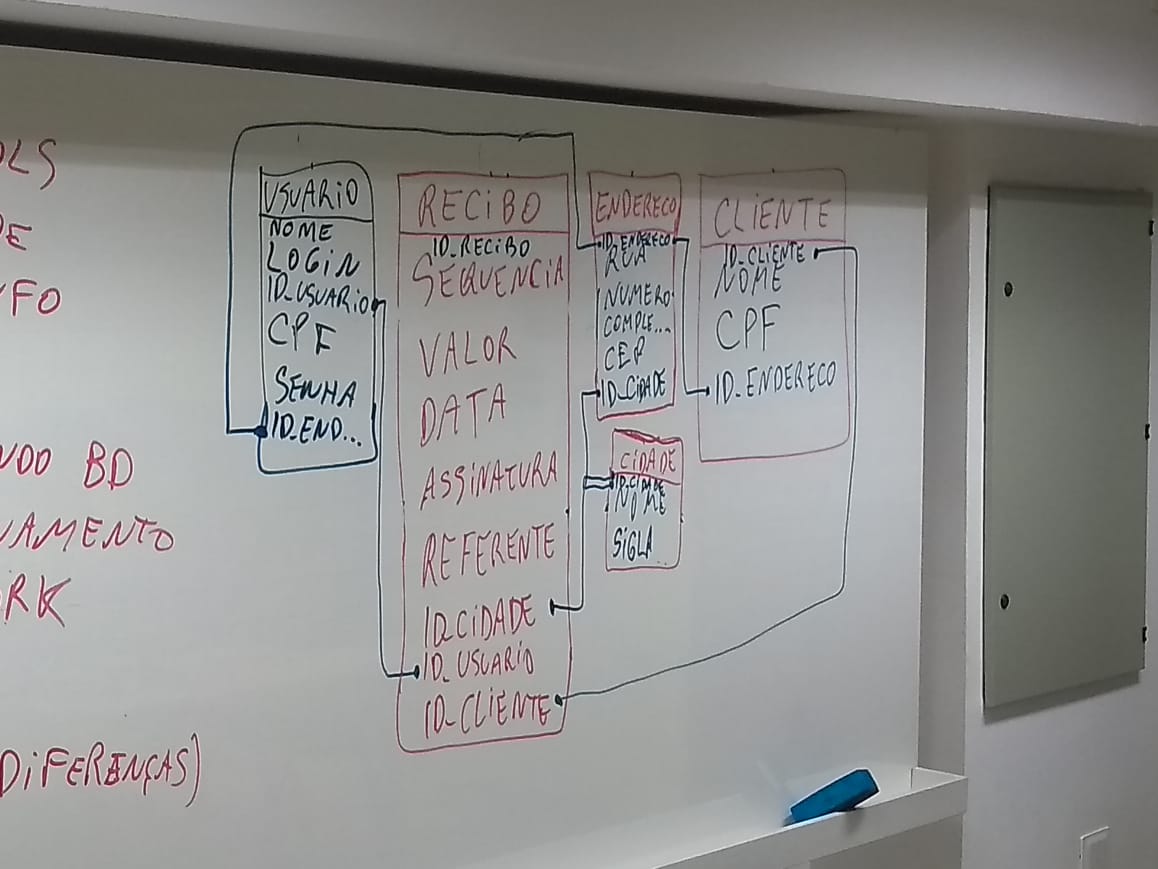 USUARIO
NOME
LOGIN
ID_USUARIO
CPF
SENHA
ID_END...
RECIBO
ID_RECIBO
SEQUENCIA
VALOR
DATA
ASSINATURA
REFERENTE
ID_CIDADE
ID_USUARIO
ID_CLIENTE
ENDERECO
ID_ENDERECO
RUA
NUMERO
COMPLE...
CEP
ID_CIDADE
CIDADE
ID_CIDADE
NOME
SIGLA
CLIENTE
ID_CLIENTE
NOME
CPF
ID_ENDERECO
BD
DIFERENÇAS)